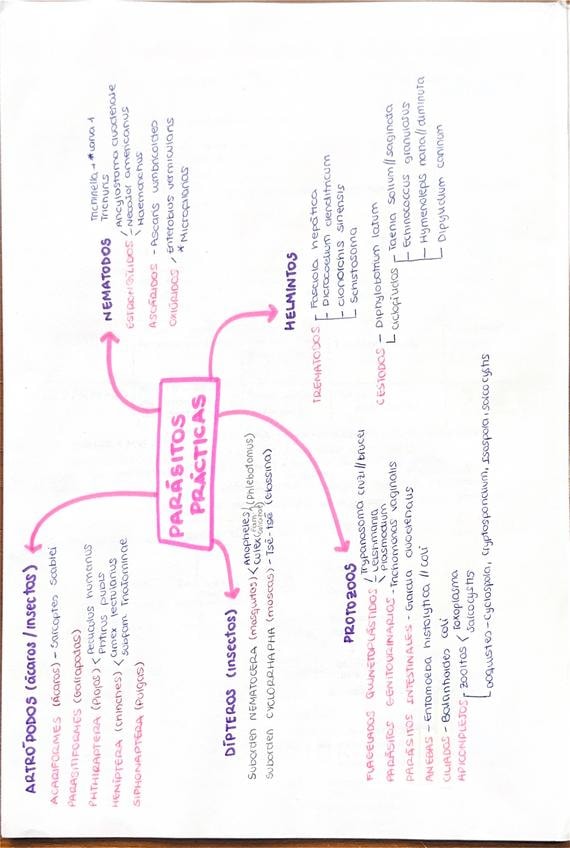 PARÁSITOS
PRÁCTICAS
ARTRÓPODOS (ácaros/insectos)
ACARIFORMES (ácaros) - Sarcoptes scabiei
PARASITIFORMES (Garrapatas)
PHTHIRAPTERA (Piojos) < Pediculus humanus
Phtirus pubis
HEMÍPTERA (chinches) < Cimex lectularius
Subfam. Triatominae
SIPHONAPTERA (Pulgas)
DÍPTEROS (insectos)
Suborden NEMATOCERA (mosquitos) < Anopheles
Culex
(Phlebotomus)
Suborden CYCLORRHAPHA (moscas) - Tsé-Tsé (Glossina)
NEMATODOS
Trichinella → *larva 1
Trichuris
ESTRONGÍLIDOS
Ancylostoma duodenale
Necator americanus
Haemonchus
ASCÁRIDOS - Ascaris lumbricoides
OXIÚRIDOS / Enterobius vermicularis
* Microfilarias
HELMINTOS
TREMATODOS
Fasciola hepática
Dicrocoelium dendriticum
Clonorchis sinensis
Schistosoma
CESTODOS - Diphylobotrium latum
Ciclofílidos
Taenia solium//saginata
Echinococcus granulosus
Hymenolepis nana//diminuta
Dipylidium caninum
PROTOZOOS
FLAGELADOS QUINETOPLÁSTIDOS
Trypanosoma cruzi//brucei
Leishmania
Plasmodium
PARÁSITOS GENITOURINARIOS - Trichomonas vaginalis
PARÁSITOS INTESTINALES - Giardia duodenalis
AMEBAS - Entamoeba histolytica // coli
CILIADOS - Balanthoides coli
APICOMPLEJOS
zoolitos < Toxoplasma
Sarcocystis
ooquistes - cyclospora, cryptosporidium, Isospora, sarcocystis